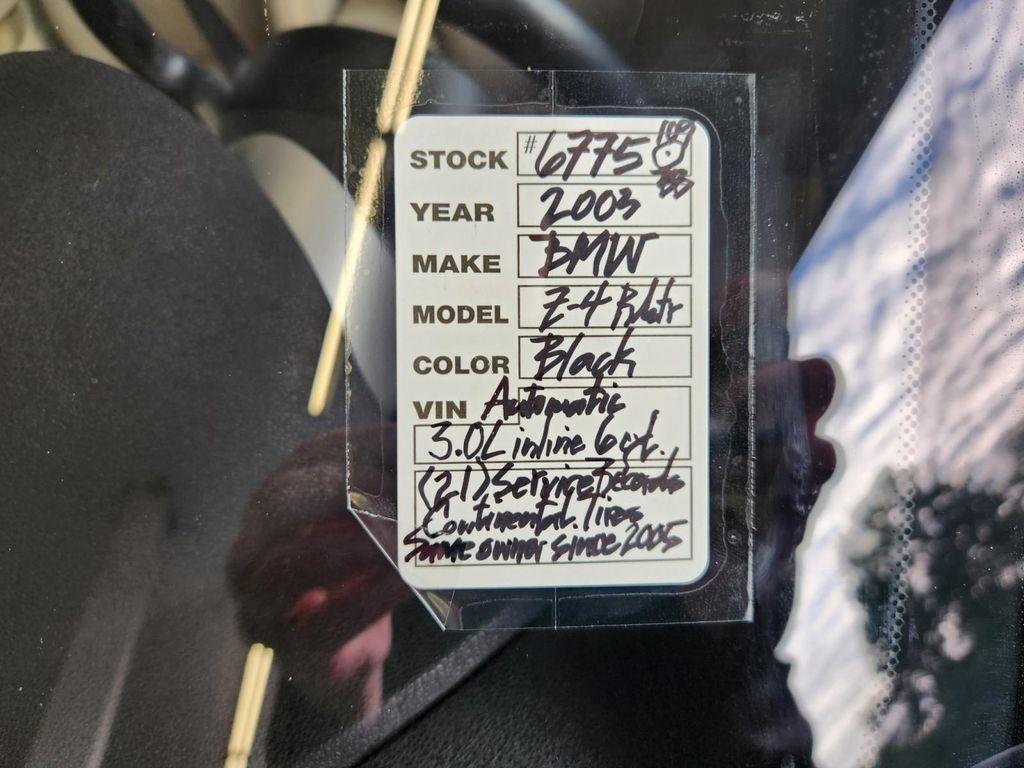 STOCK #6775
YEAR 2003
MAKE BMW
MODEL Z-4 Rdstr
COLOR Black
VIN Automatic
3.0L inline 6 cyl.
(21) Service Records
Continental Tires
Same owner since 2005